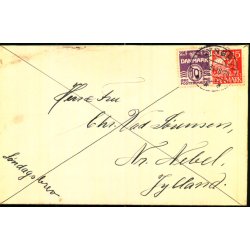 DANMARK
10
Herr Fru
Chr. Vad Sørensen,
Nr. Nebel.
Jylland.
Søndagsbrev